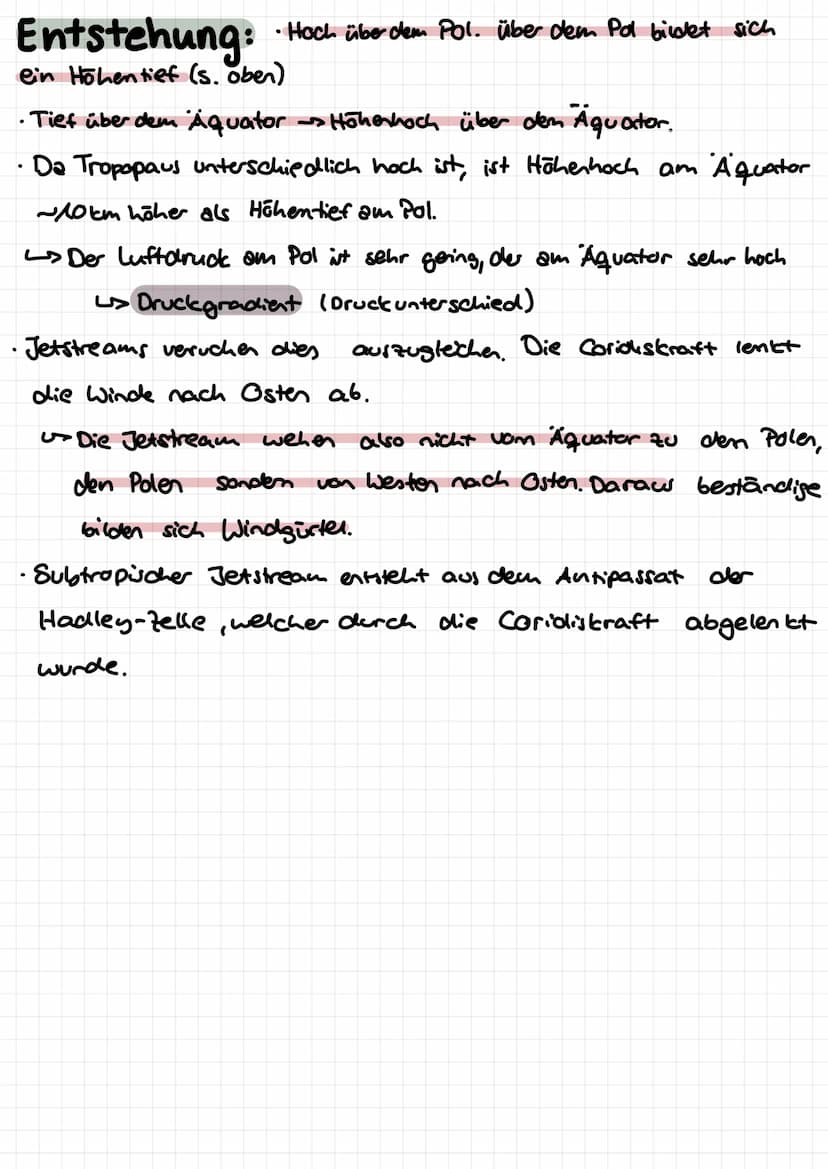 Entstehung: · Hoch über dem Pol. über dem Pol bildet sich
ein Höhentief (s. oben)
· Tief über dem Äquator → Höhenhoch über dem Äquator.
· Da Tropopaus unterschiedlich hoch ist, ist Höhenhoch am Äquator
~10 km höher als Höhentief am Pol.
↳ Der Luftdruck am Pol ist sehr gering, der am Äquator sehr hoch
↳ Druckgradient (Druckunterschied)
· Jetstreams veruchen dies auszugleichen. Die Corioliskraft lenkt
die Winde nach Osten ab.
↳ Die Jetstream wehen also nicht vom Äquator zu den Polen,
den Polen sondern von Westen nach Osten. Daraus beständige
bilden sich Windgürtel.
· Subtropischer Jetstream entsteht aus dem Antipassat der
Hadley-Zelle, welcher durch die Corioliskraft abgelenkt
wurde.